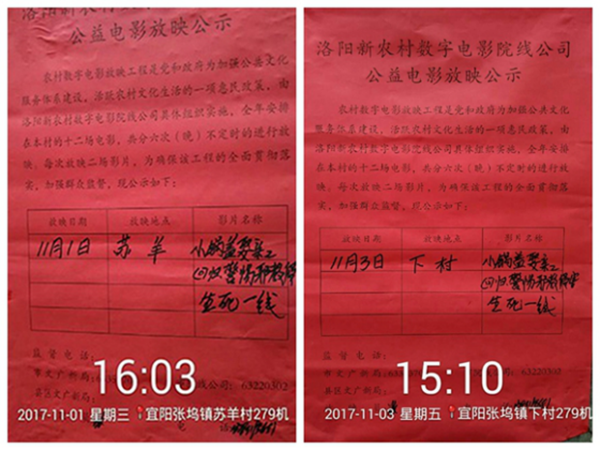 洛阳新农村数字电影院线公司
公益电影放映公示
农村数字电影放映工程是党和政府为加强公共文化
服务体系建设，活跃农村文化生活的一项惠民政策，由
洛阳新农村数字电影院线公司具体组织实施，全年安排
在本村的十二场电影，共分六次（晚）不定时的进行放
映，每次放映二场影片，为确保该工程的全面贯彻落
实，加强群众监督，现公示如下：
放映日期 放映地点 影片名称
11月1日 苏羊
生死一线
监督电话：
市文广新局： 63220302
县区文广新局：
16:03
2017-11-01 星期三 宜阳张坞镇苏羊村279机
洛阳新农村数字电影院线公司
公益电影放映公示
农村数字电影放映工程是党和政府为加强公共文化
服务体系建设，活跃农村文化生活的一项惠民政策，由
洛阳新农村数字电影院线公司具体组织实施，全年安排
在本村的十二场电影，共分六次（晚）不定时的进行放
映，每次放映二场影片，为确保该工程的全面贯彻落
实，加强群众监督，现公示如下：
放映日期 放映地点 影片名称
11月3日 下村
生死一线
监督电话：
市文广新局： 线公司：63220302
县区文广新局：
15:10
2017-11-03 星期五 宜阳张坞镇下村279机